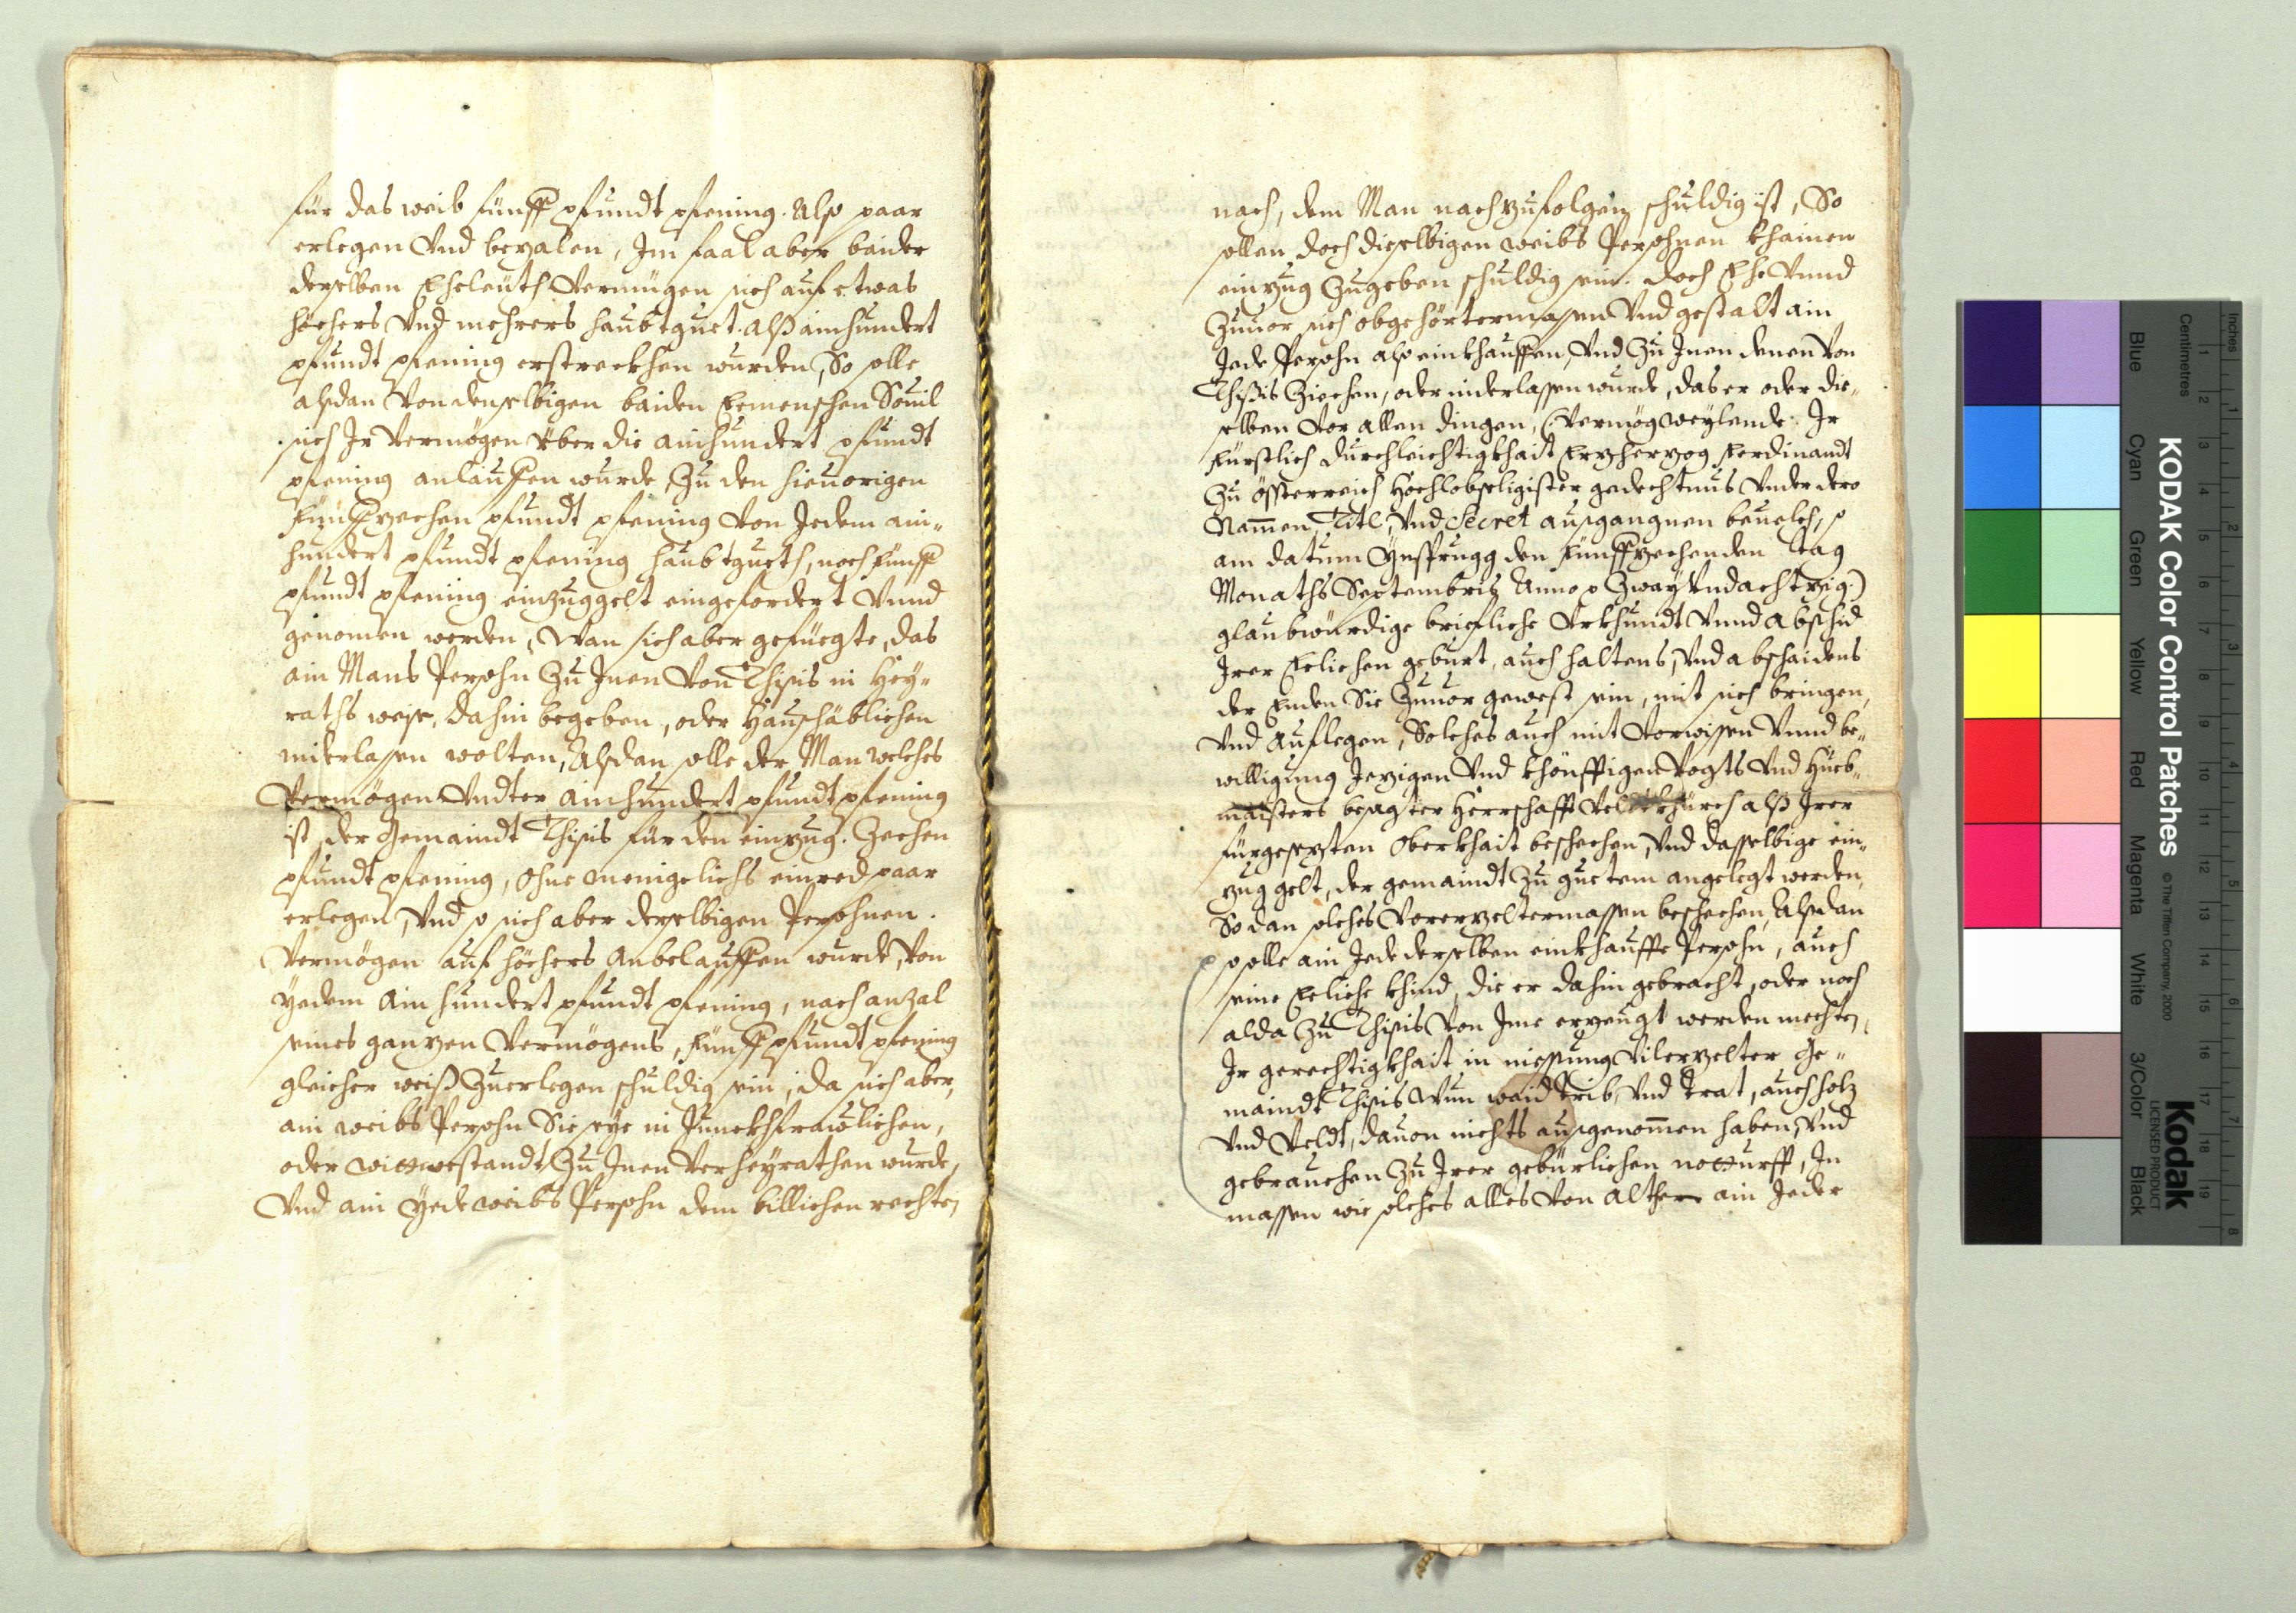 für das weib fünff pfundt pfening. Also paar
erlegen Vnd bezalen, Im faal aber baider
derselben Eheleüth Vermügen sich auf etwas
höhers Vnd mehrers haubtguet. Alß ainhundert
pfundt pfening erstreckhen wurden, So solle
alsdan Von denselbigen baiden Eemenschen Souil
sich Ir Vermögen über die ainhundert pfundt
pfening anlauffen wurde, Zu den hieuorigen
Fünffzechen pfundt pfening Von Jedem ain„
hundert pfundt pfening haubtgueth, noch fünff
pfundt pfening einzuggelt eingefordert Vnnd
genomen werden, Wan sich aber gefüegte, das
ain Mans Persohn Zu Inen Von Thisis in Hey„
raths weise, dahin begeben, oder Haushäblichen
niderlassen wolten, Alsdan solle der Man welches
Vermögen Vndter ainhundert pfundt pfening
ist, der Gemaindt Thisis für den einzug. Zechen
pfundt pfening, ohne menigelichs einred paar
erlegen, Vnd so sich aber derselbigen Persohnen.
Vermögen auf höhers Anbelauffen wurde, Von
Yedem Ain hundert pfundt pfening, nach anzal
seines ganzen Vermögens, fünff pfundt pfening
gleicher weiß Zuerlegen schuldig sein, da sich aber,
ain weibs Persohn Sie seye in Junckhfrawlichen,
oder wittwestandt, Zu Inen Verheyrathen wurde,
Vnd ain Yede weibs Persohn dem billichen rechten
nach, dem Man nachzufolgen schuldig ist, So
sollen doch dieselbigen weibs Persohnen khainen
einzug Zugeben schuldig sein. doch Ehe Vnnd
Zuuor sich obgehörtermassen Vnd gestalt ain
Jede Persohn also einkhauffen, Vnd Zu Inen denen Von
Thisis Ziechen, oder niderlassen wurde, das er oder die„
selben Vor allen dingen, (: Vermög weylende: Ir
Fürstlich durchleichtigkhait Erzherzog Ferdinandt
Zu össterreich Hochlobseligister gedechtnus Vnder dero
Namen, Titl, Vnd Secret ausgangnen beuelch, so
am datum Ynsprugg den Fünffzechenden Tag
Monaths Septembris Anno &c Zway Vndachtzig:)
glaubwürdige briefliche Vrkhundt Vnnd Abschid
Irer Eelichen geburt, auch haltens, Vnd abschaidens
der Enden Sie Zuuor gewest sein, mit sich bringen,
Vnd Auflegen, Solches auch mit Vorwissen Vnnd be„
willigung Jezigen Vnd khönfftigen Vogts Vnd Hueb„
maisters besagter Herrschafft Veldtkhürch alß Irer
fürgesezten Oberkhait beschechen, Vnd dasselbige ein„
zug gelt, der gemaindt Zu guetem angelegt werden,
So dan solches Vorerzeltermassen beschechen, Alsdan
solle ain Jede derselben einkhauffte Persohn, auch
seine Eeliche khind, die er dahin gebracht, oder noch
alda Zu Thisis Von Ime erzeugt werden mechten,
Ir gerechtigkhait in niessung Vilerzelter Ge„
maindt Thisis Wun waid Trib, Vnd Trat, auch holz
Vnd Veldt, dauon nichts ausgenomen haben, Vnd
gebrauchen Zu Irer gebürlichen notturfft, In
massen wie solches alles Von Althero ain Jeder
Inches
Centimetres
1 2 3 4 5 6 7 8 9 10 11 12 13 14 15 16 17 18 19
1 2 3 4 5 6 7 8
KODAK Color Control Patches
© The Tiffen Company, 2000
Kodak
LICENSED PRODUCT
Blue
Cyan
Green
Yellow
Red
Magenta
White
3/Color
Black